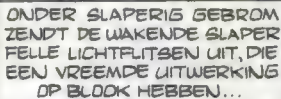 ONDER SLAPERIG GEBROM
ZENDT DE WAKENDE SLAPER
FELLE LICHTFLITSEN UIT, DIE
EEN VREEMDE UITWERKING
OP BLOOK HEBBEN...